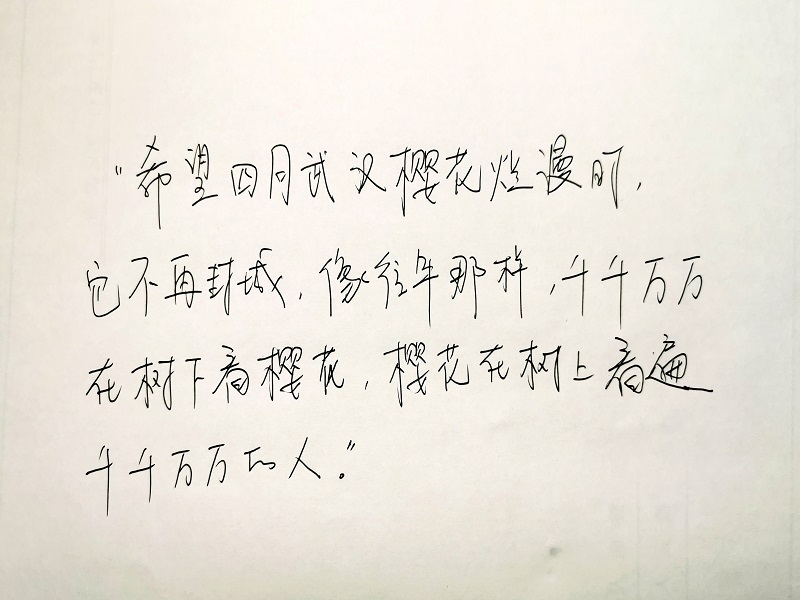 "希望四月武汉樱花烂漫时,
它不再封城,像往年那样,千千万万
在树下看樱花,樱花在树上看遍
千千万万的人."